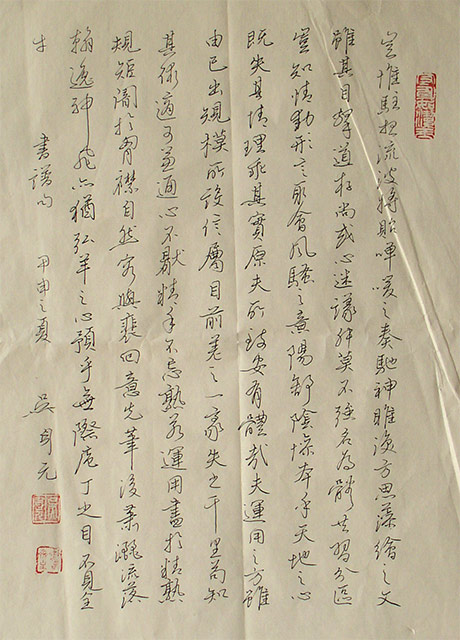 豈惟駐想流波將貽嘽喛之奏馳神睢渙方思藻繪之文
雖其目擊道存尚或心迷議舛莫不強名為體共習分區
豈知情動形言取會風騷之意陽舒陰慘本乎天地之心
既失其情理乖其實原夫所致安有體哉夫運用之方雖
由己出規模所設信屬目前差之一豪失之千里苟知
其術適可兼通心不厭精手不忘熟若運用盡於精熟
規矩闇於胸襟自然容與裴回意先筆後瀟灑流落
翰逸神飛亦猶弘羊之心預乎無際庖丁之目不見全
牛 書譜句 甲申之夏 吳身元